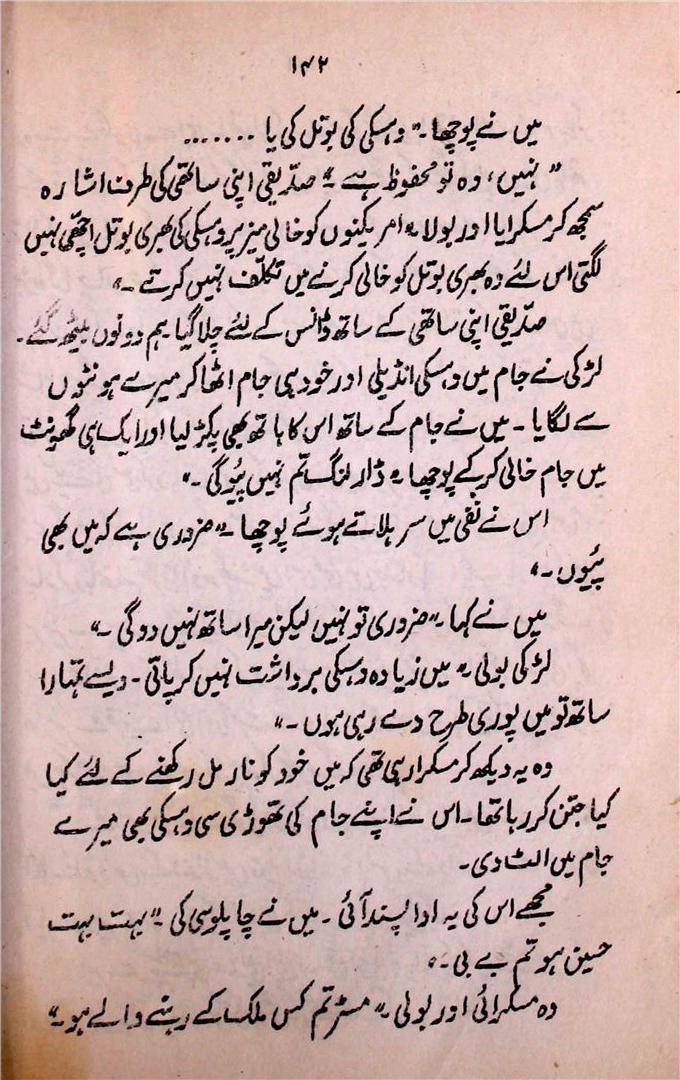 ۱۴۲
میں نے پوچھا۔ "وہسکی کی بوتل کی یا .......
"نہیں، وہ تو محفوظ ہے۔" صدّیقی اپنی ساتھی کی طرف اشارہ
سمجھ کر مسکرایا اور بولا۔ "امریکنوں کو خالی میز پر وہسکی کی بھری بوتل اچھی نہیں
لگتی اس لئے وہ بھری بوتل کو خالی کرنے میں تکلّف نہیں کرتے۔"
صدّیقی اپنی ساتھی کے ساتھ ڈانس کے لئے چلا گیا ہم دونوں بیٹھ گئے۔
لڑکی نے جام میں وہسکی انڈیلی اور خود ہی جام اٹھا کر میرے ہونٹوں
سے لگایا۔ میں نے جام کے ساتھ اس کا ہاتھ بھی پکڑ لیا اور ایک ہی گھونٹ
میں جام خالی کر کے پوچھا۔ "ڈارلنگ تم نہیں پیُوگی۔"
اس نے نفی میں سر ہلاتے ہوئے پوچھا۔ "ضروری ہے کہ میں بھی
پیُوں۔"
میں نے کہا۔ "ضروری تو نہیں لیکن میرا ساتھ نہیں دو گی۔"
لڑکی بولی۔ "میں زیادہ وہسکی برداشت نہیں کر پاتی۔ ویسے تمہارا
ساتھ تو میں پوری طرح دے رہی ہوں۔"
وہ یہ دیکھ کر مسکرا رہی تھی کہ میں خود کو نارمل رکھنے کے لئے کیا
کیا جتن کر رہا تھا۔ اس نے اپنے جام کی تھوڑی سی وہسکی بھی میرے
جام میں الٹ دی۔
مجھے اس کی یہ ادا پسند آئی۔ میں نے چاپلوسی کی۔ "بہت بہت
حسین ہو تم بے بی۔"
وہ مسکرائی اور بولی۔ "مسٹر تم کس ملک کے رہنے والے ہو۔"